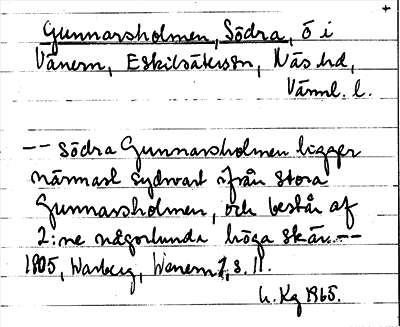 +
Gunnarsholmen, Södra, ö i
Vänern, Eskilsäterssn, Näs hd,
Värml. l.
-- Södra Gunnarsholmen ligger
närmast sydvart ifrån Stora
Gunnarsholmen, och består af
2:ne någorlunda höga skär. --
1805, Warberg, Wenern 1, s. 11.
L. Kg 1965.